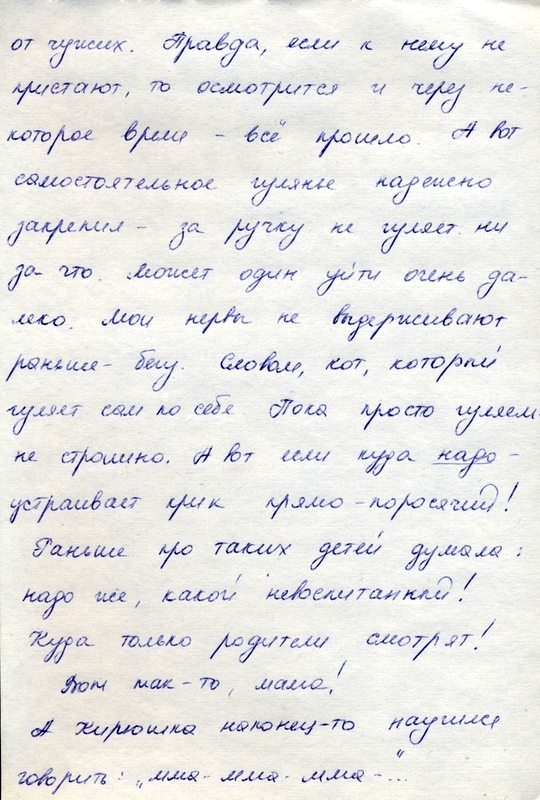 от чужих. Правда, если к нему не
пристают, то осмотрится и через не-
которое время - всё прошло. А вот
самостоятельное гулянье надежно
закрепил - за ручку не гуляет ни
за что. Может один уйти очень да-
леко. Мои нервы не выдерживают
раньше - бегу. Словом, кот, который
гуляет сам по себе. Пока просто гуляем -
не страшно. А вот если куда надо -
устраивает крик прямо - поросячий!
Раньше про таких детей думала:
надо же, какой невоспитанный!
Куда только родители смотрят!
Вот так-то, мама!
А Кирюшка наконец-то научился
говорить: „мма-мма-мма-"...